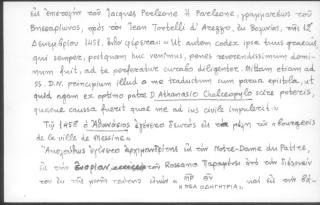 ἐκ ἐπιστολῆς τοῦ Jacques Perleone ἢ Parleone, γραμματέως τοῦ
Βησσαρίωνος, πρὸς τὸν Jean Tortelli d'Arezzo, ἐκ Βολωνίας, τῇ 12
Δεκεμβρίου 1451, ὅπου φέρεται: «Ut autem codex ipse tuus graecus,
qui semper, postquam huc venimus, penes reverendissimum domi-
num fuit, ad te perferatur curabo diligenter. Mittam etiam ad
SS. D.N. principium illud a me traductum cum parva epistola, et
quid agam ex optimo patre D. Athanasio Chalceopylo scire poteris,
quaeve caussa fuerit quae me ad ius civile impulerit.»
Τῷ 1458 ὁ Ἀθανάσιος ἐγένετο δεκτὸς ὡς μέλη τῶν «bourgeois
de la ville de Messine».
Ἀκολούθως ἐγένετο ἀρχιμανδρίτης ἐν τῇ Notre-Dame du Pattre,
εἰς τὴν τοῦ Rossano
τον ἐν τῇ μονῇ ταύτῃ ΜΡ ΘΥ καὶ εἰς τὴν
«ΝΕΑ ΟΔΗΓΗΤΡΙΑ»